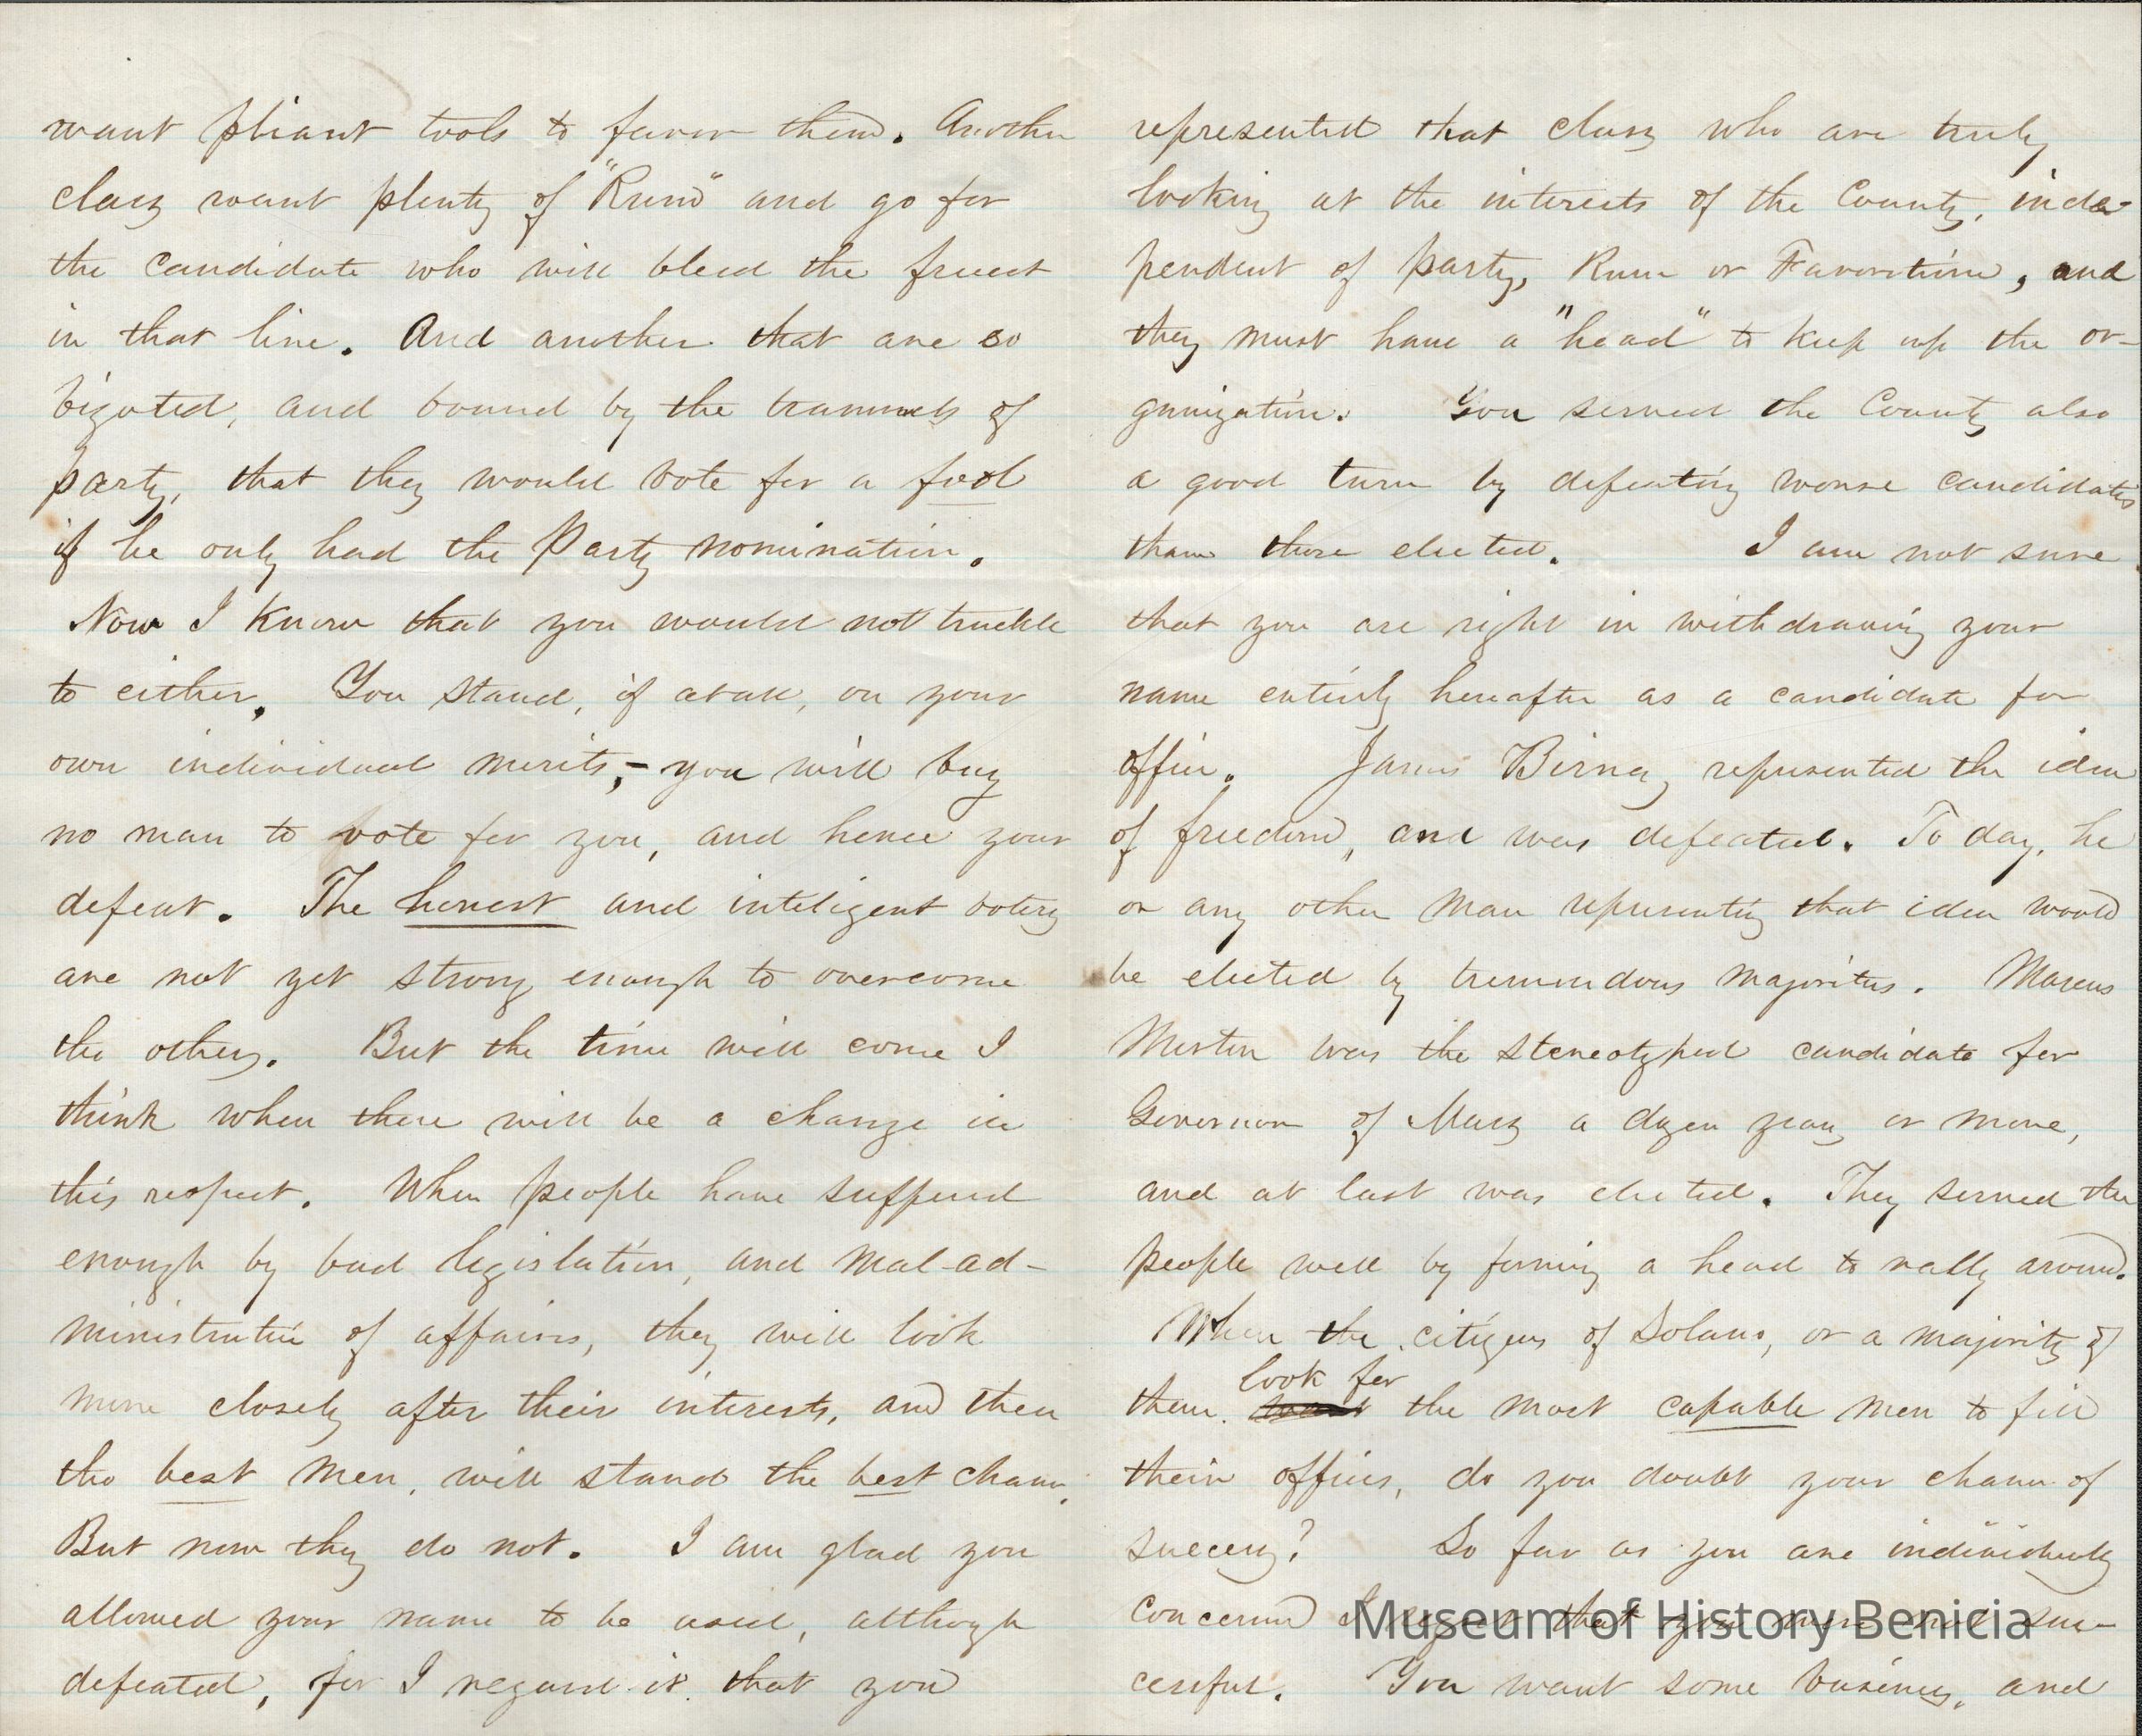 want pliant tools to favor them. Another
class want plenty of "Rum" and go for
the candidate who will bleed the freest
in that line. And another that are so
bigoted, and bound by the trammels of
party, that they would vote for a fool
if he only had the Party nomination.
Now I know that you would not truckle
to either. You stand, if at all, on your
own individual merits,- you will buy
no man to vote for you, and hence your
defeat. The honest and inteligent voters
are not yet strong enough to overcome
the others. But the time will come I
think when there will be a change in
this respect. When people have suffered
enough by bad legislation, and mal-ad-
ministration of affairs, they will look
more closely after their interests, and then
the best men, will stand the best chance.
But now they do not. I am glad you
allowed your name to be used, although
defeated, for I regard it that you
represented that class who are truly
looking at the interests of the County, inde-
pendent of party, Rum or Favoritism, and
they must have a "head" to keep up the or-
ganization. You served the County also
a good turn by defeating worse candidates
than those elected. I am not sure
that you are right in withdrawing your
name entirely hereafter as a candidate for
office. James Birney represented the idea
of freedom, and was defeated. To day, he
or any other man representing that idea would
be elected by tremendous majorities. Marcus
Morton was the stereotyped candidate for
Governor of Mass a dozen years or more,
and at last was elected. They served the
people well by forming a head to rally around.
When the citizens of Solano, or a majority of
look for
them want the most capable men to fill
their offices, do you doubt your chance of
success? So far as you are individually
concerned I regret that you were not suc-
cessful. You want some business, and
Museum of History Benicia